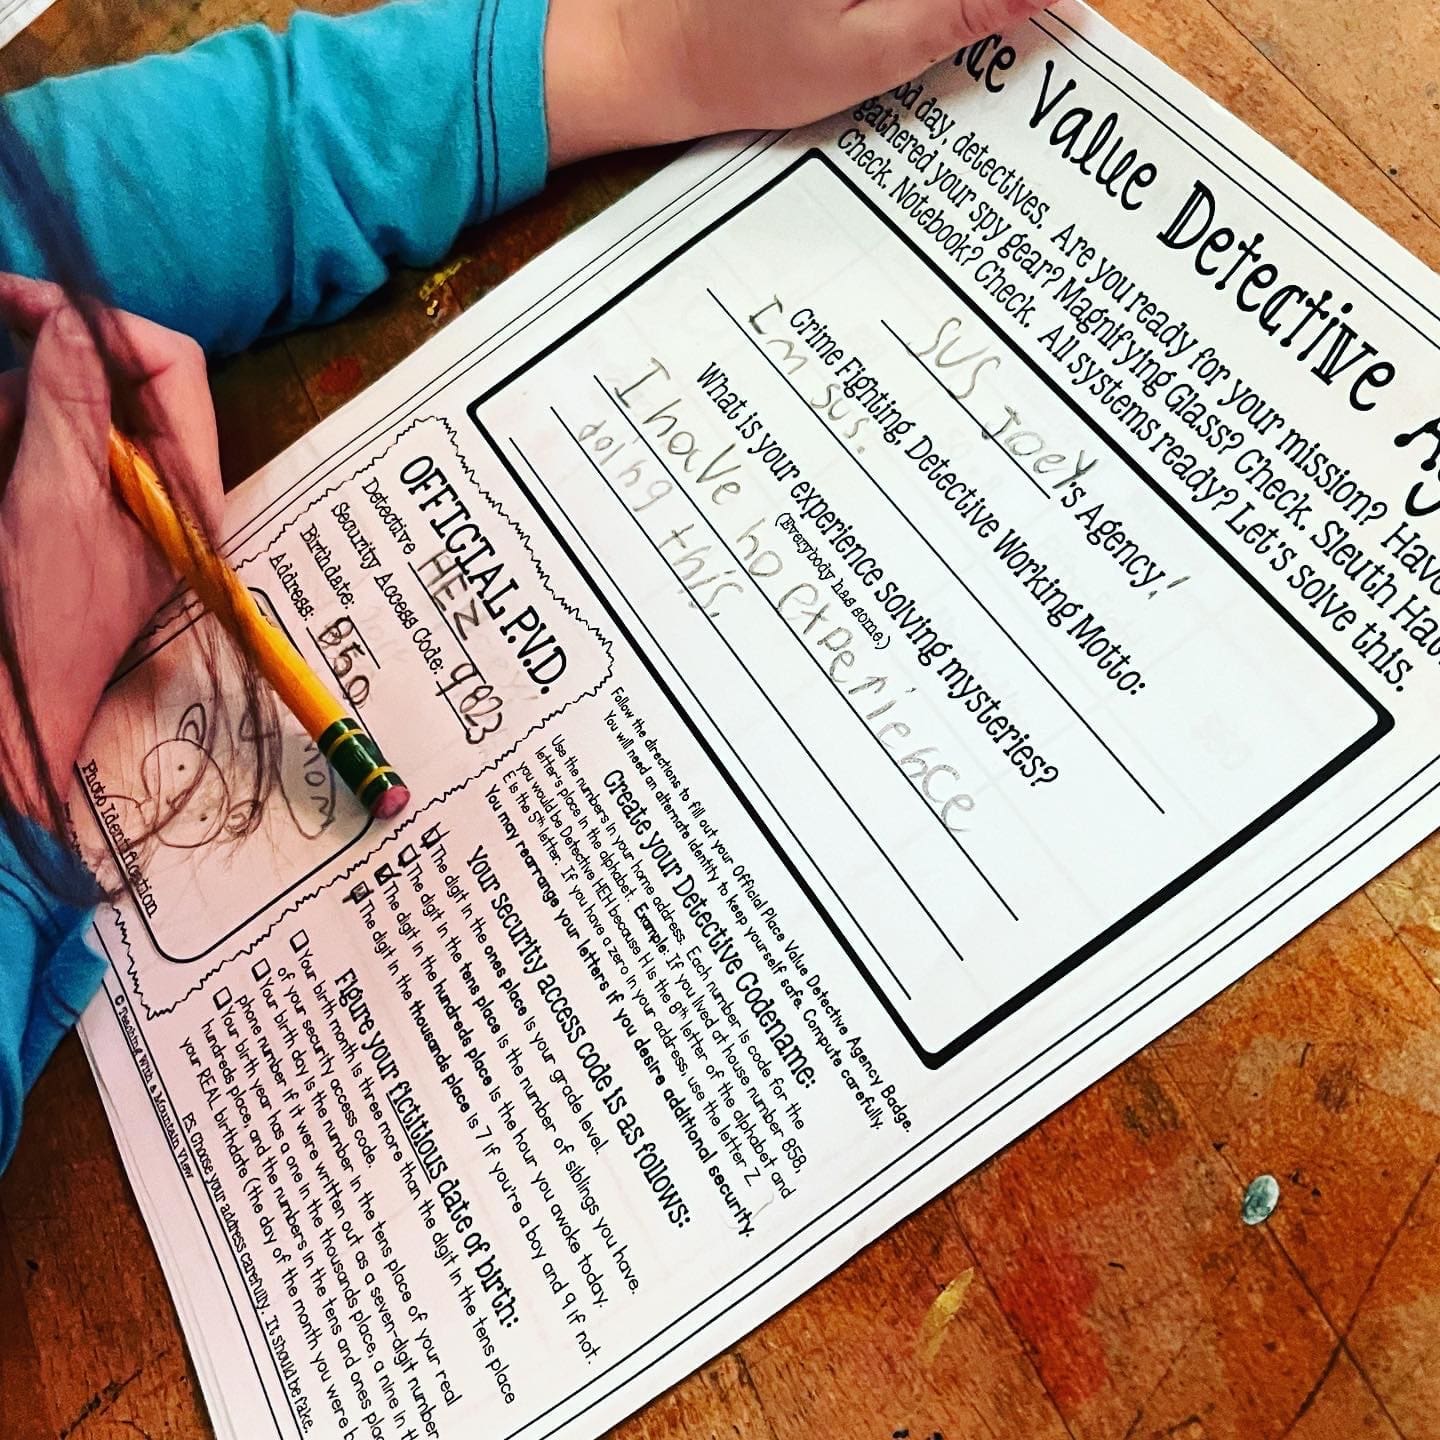 Value Detective
day, detectives. Are you ready for your mission? Have
gathered your spy gear? Magnifying Glass? Check. Sleuth Hat
Check. Notebook? Check. All systems ready? Let's solve this.
SUS JoeY's Agency!
Crime Fighting, Detective Working Motto:
I'm sus.
What is your experience solving mysteries?
(Everybody has some.)
I have no experience
doing this.
OFFICIAL P.V.D.
Detective HEZ
Security Access Code: 9823
Birthdate:
Address: 850
Photo Identification
Follow the directions to fill out your Official Place Value Detective Agency Badge.
You will need an alternate identity to keep yourself safe. Compute carefully.
Create your Detective Codename:
Use the numbers in your home address. Each number is code for the
letter's place in the alphabet. Example: If you lived at house number 858,
you would be Detective HEH because H is the 8th letter of the alphabet and
E is the 5th letter. If you have a zero in your address, use the letter Z.
You may rearrange your letters if you desire additional security.
Your security access code is as follows:
The digit in the ones place is your grade level.
The digit in the tens place is the number of siblings you have.
The digit in the hundreds place is the hour you awoke today.
The digit in the thousands place is 7 if you're a boy and 9 if not.
Figure your fictitious date of birth:
Your birth month is three more than the digit in the tens place
of your security access code.
Your birth day is the number in the tens place of your real
phone number if it were written out as a seven-digit number
Your birth year has a one in the thousands place, a nine in the
hundreds place, and the numbers in the tens and ones
your REAL birthdate (the day of the month you were
P.S. Choose your address carefully. It should be fake.
© Teaching With a Mountain View